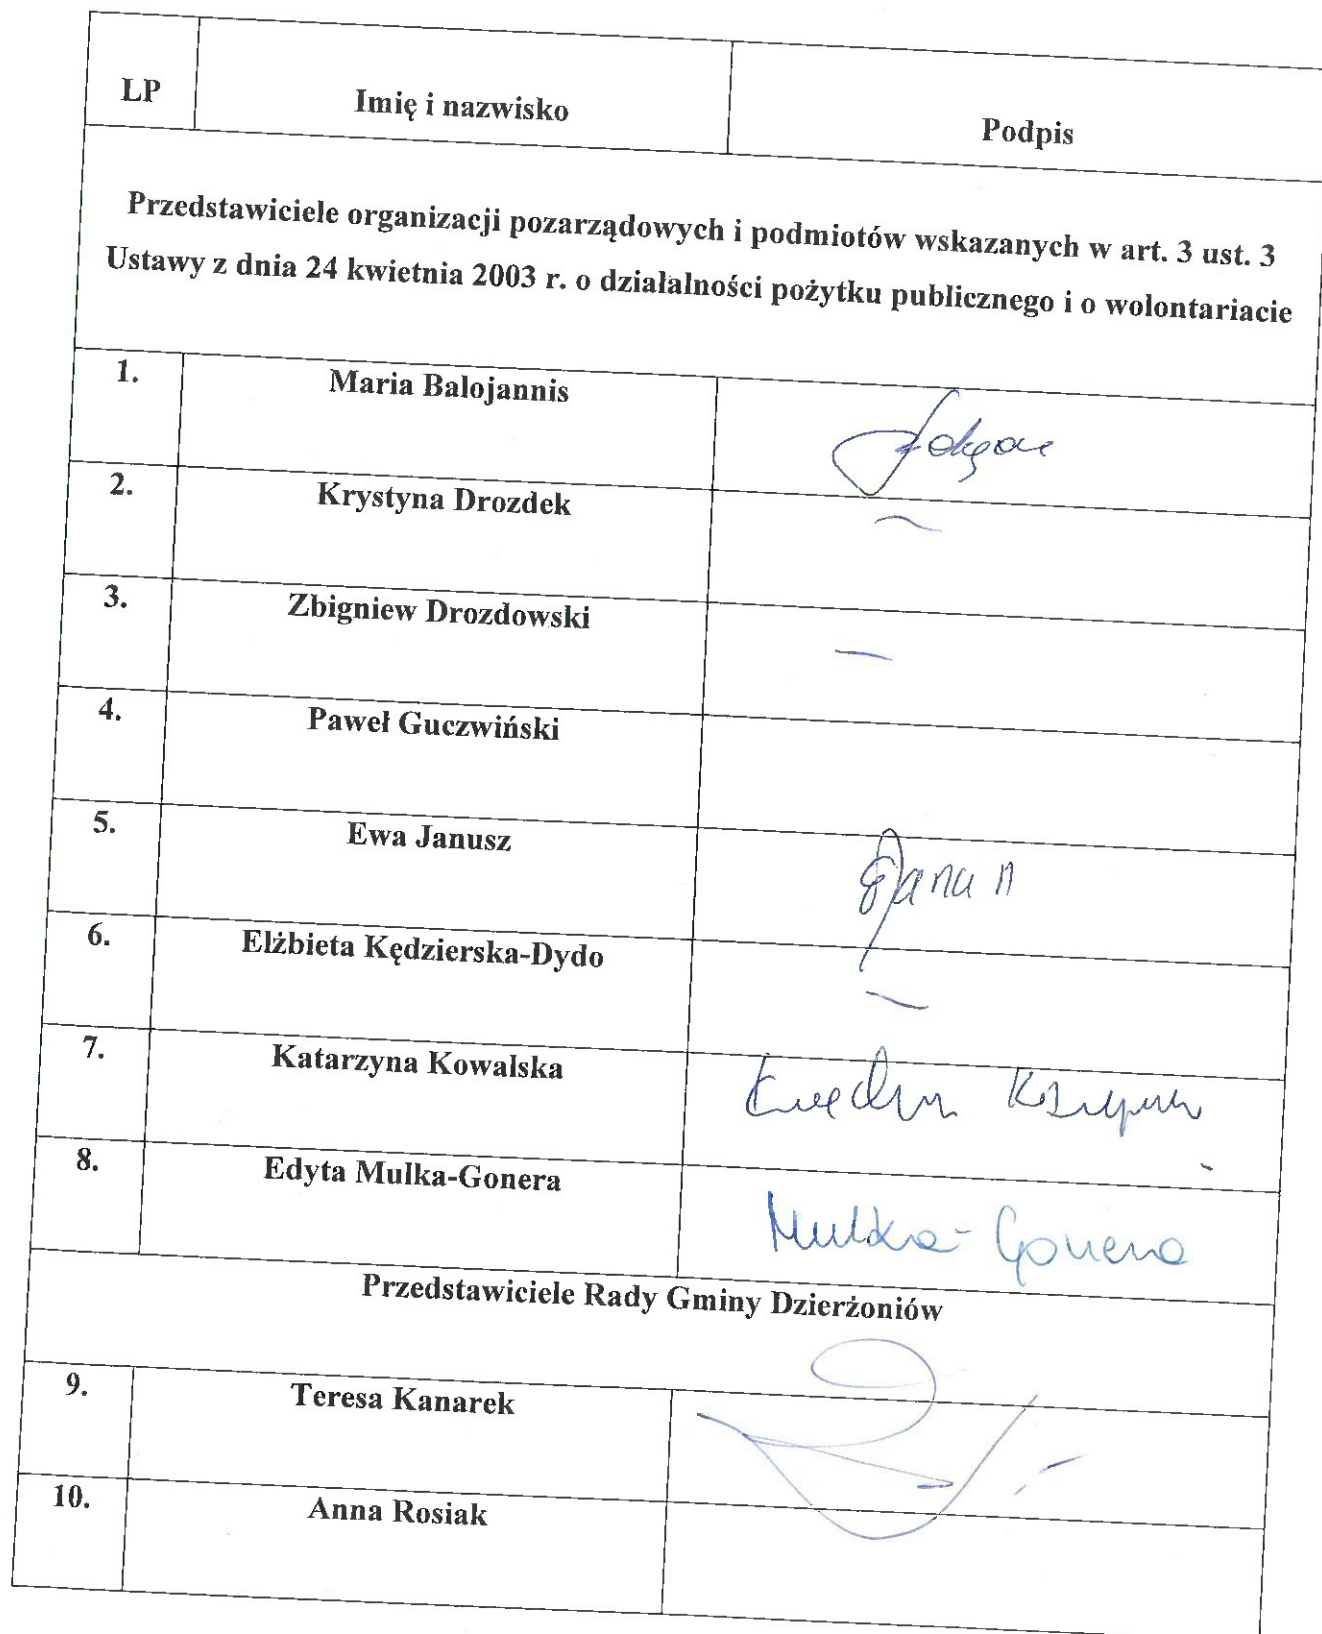 LP Imię i nazwisko Podpis
Przedstawiciele organizacji pozarządowych i podmiotów wskazanych w art. 3 ust. 3
Ustawy z dnia 24 kwietnia 2003 r. o działalności pożytku publicznego i o wolontariacie
1. Maria Balojannis
2. Krystyna Drozdek
3. Zbigniew Drozdowski
4. Paweł Guczwiński
5. Ewa Janusz
6. Elżbieta Kędzierska-Dydo
7. Katarzyna Kowalska
8. Edyta Mulka-Gonera Mulka-Gonera
Przedstawiciele Rady Gminy Dzierżoniów
9. Teresa Kanarek
10. Anna Rosiak